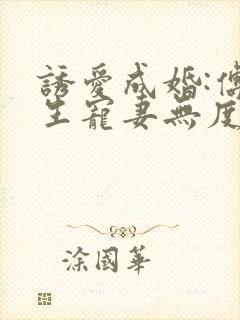 誘愛成婚:傅
生寵妻無度
涂國華